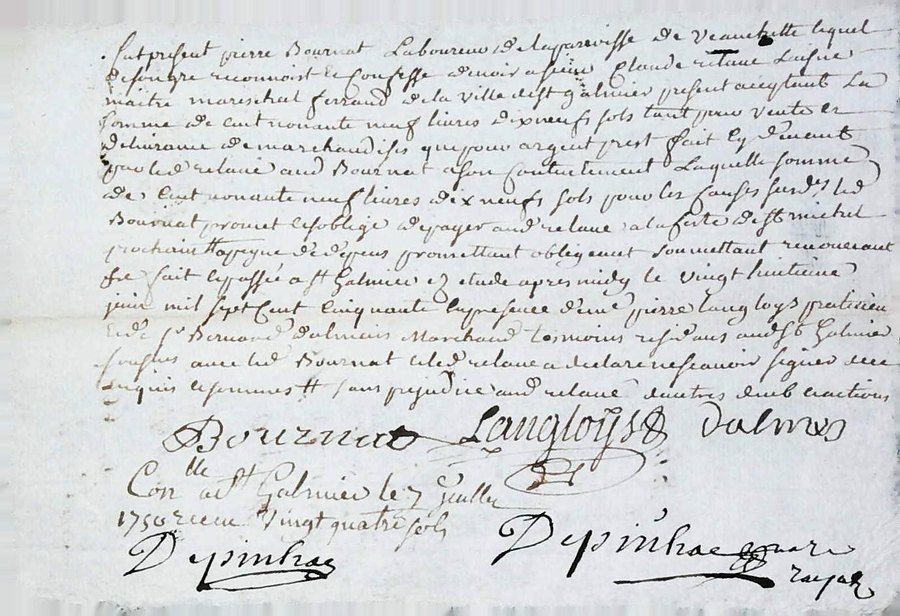 fut present pierre Bournat Laboureur de la parroisse de Veauchette lequel
de son gre reconnoist et confesse devoir a sieur Claude relave Laisne
maitre mareschal ferrand de la ville de st galmier present acceptant La
somme de cent nonante neuf livres dix neufs sols tant pour vente et
delivrance de marchandises que pour argent prest fait cy devant
par led relave aud Bournat a son contentement Laquelle somme
de cent nonante neuf livres dix neufs sols pour les causes susd led
Bournat promet et soblige de payer aud relave a la feste de st michel
prochain a peyne de depens promettant obligeant soumettant renonceant
fit fait et passée a st Galmier etude apres midy le vingt huitieme
juin mil sept Cent cinquante en presence de me pierre langloys praticien
et de sr Bernard dalmais Marchand temoins residans aud st Galmier
soussignes avec led Bournat et led relave a declare ne scavoir signer de ce
enquis et sommes sans prejudice aud relave dautres deub et actions
Bournat Langloys dalmes
Con lle a st Galmier le 7 Juillet
1750 receu vingt quatre sols
Depinhac Depinhac